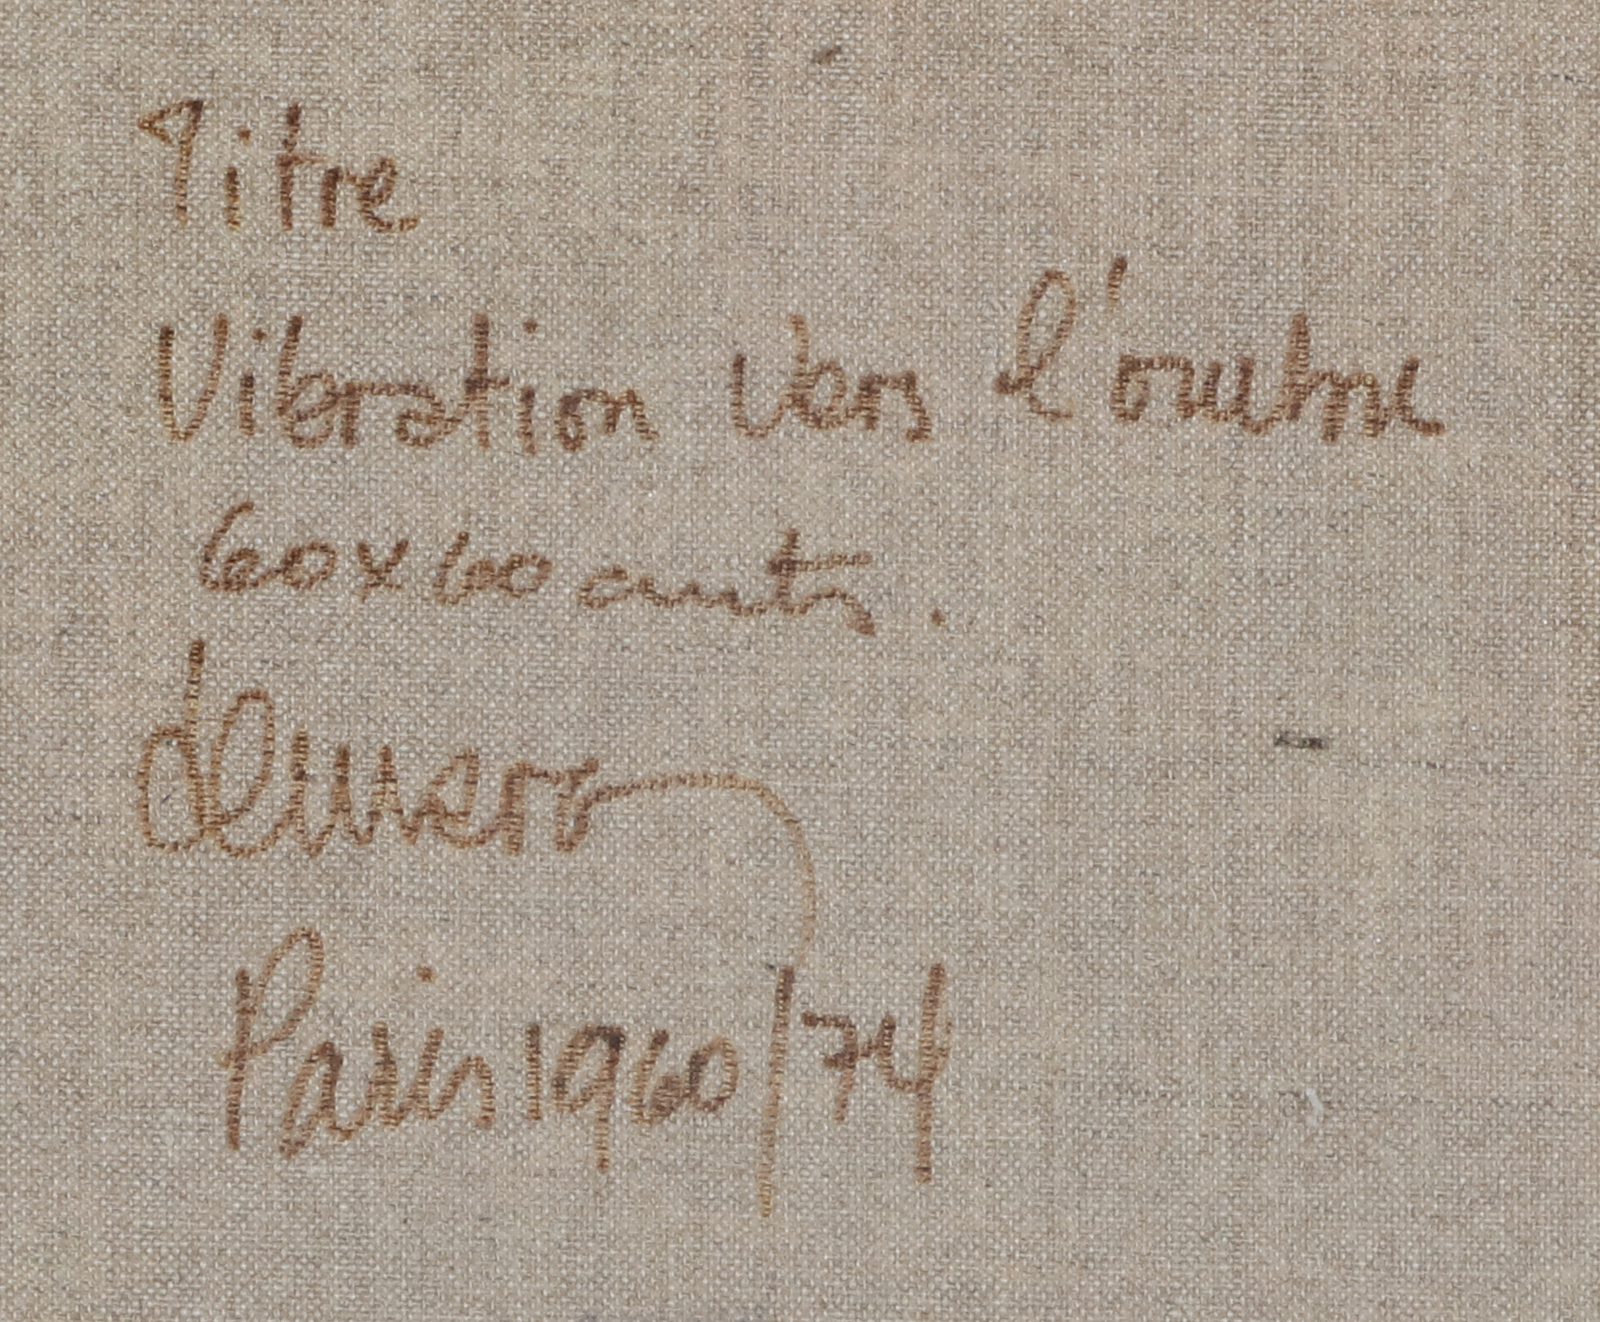 Titre
Vibration vers l'ombre
60x60 cmts.
demarco
Paris 1960/74